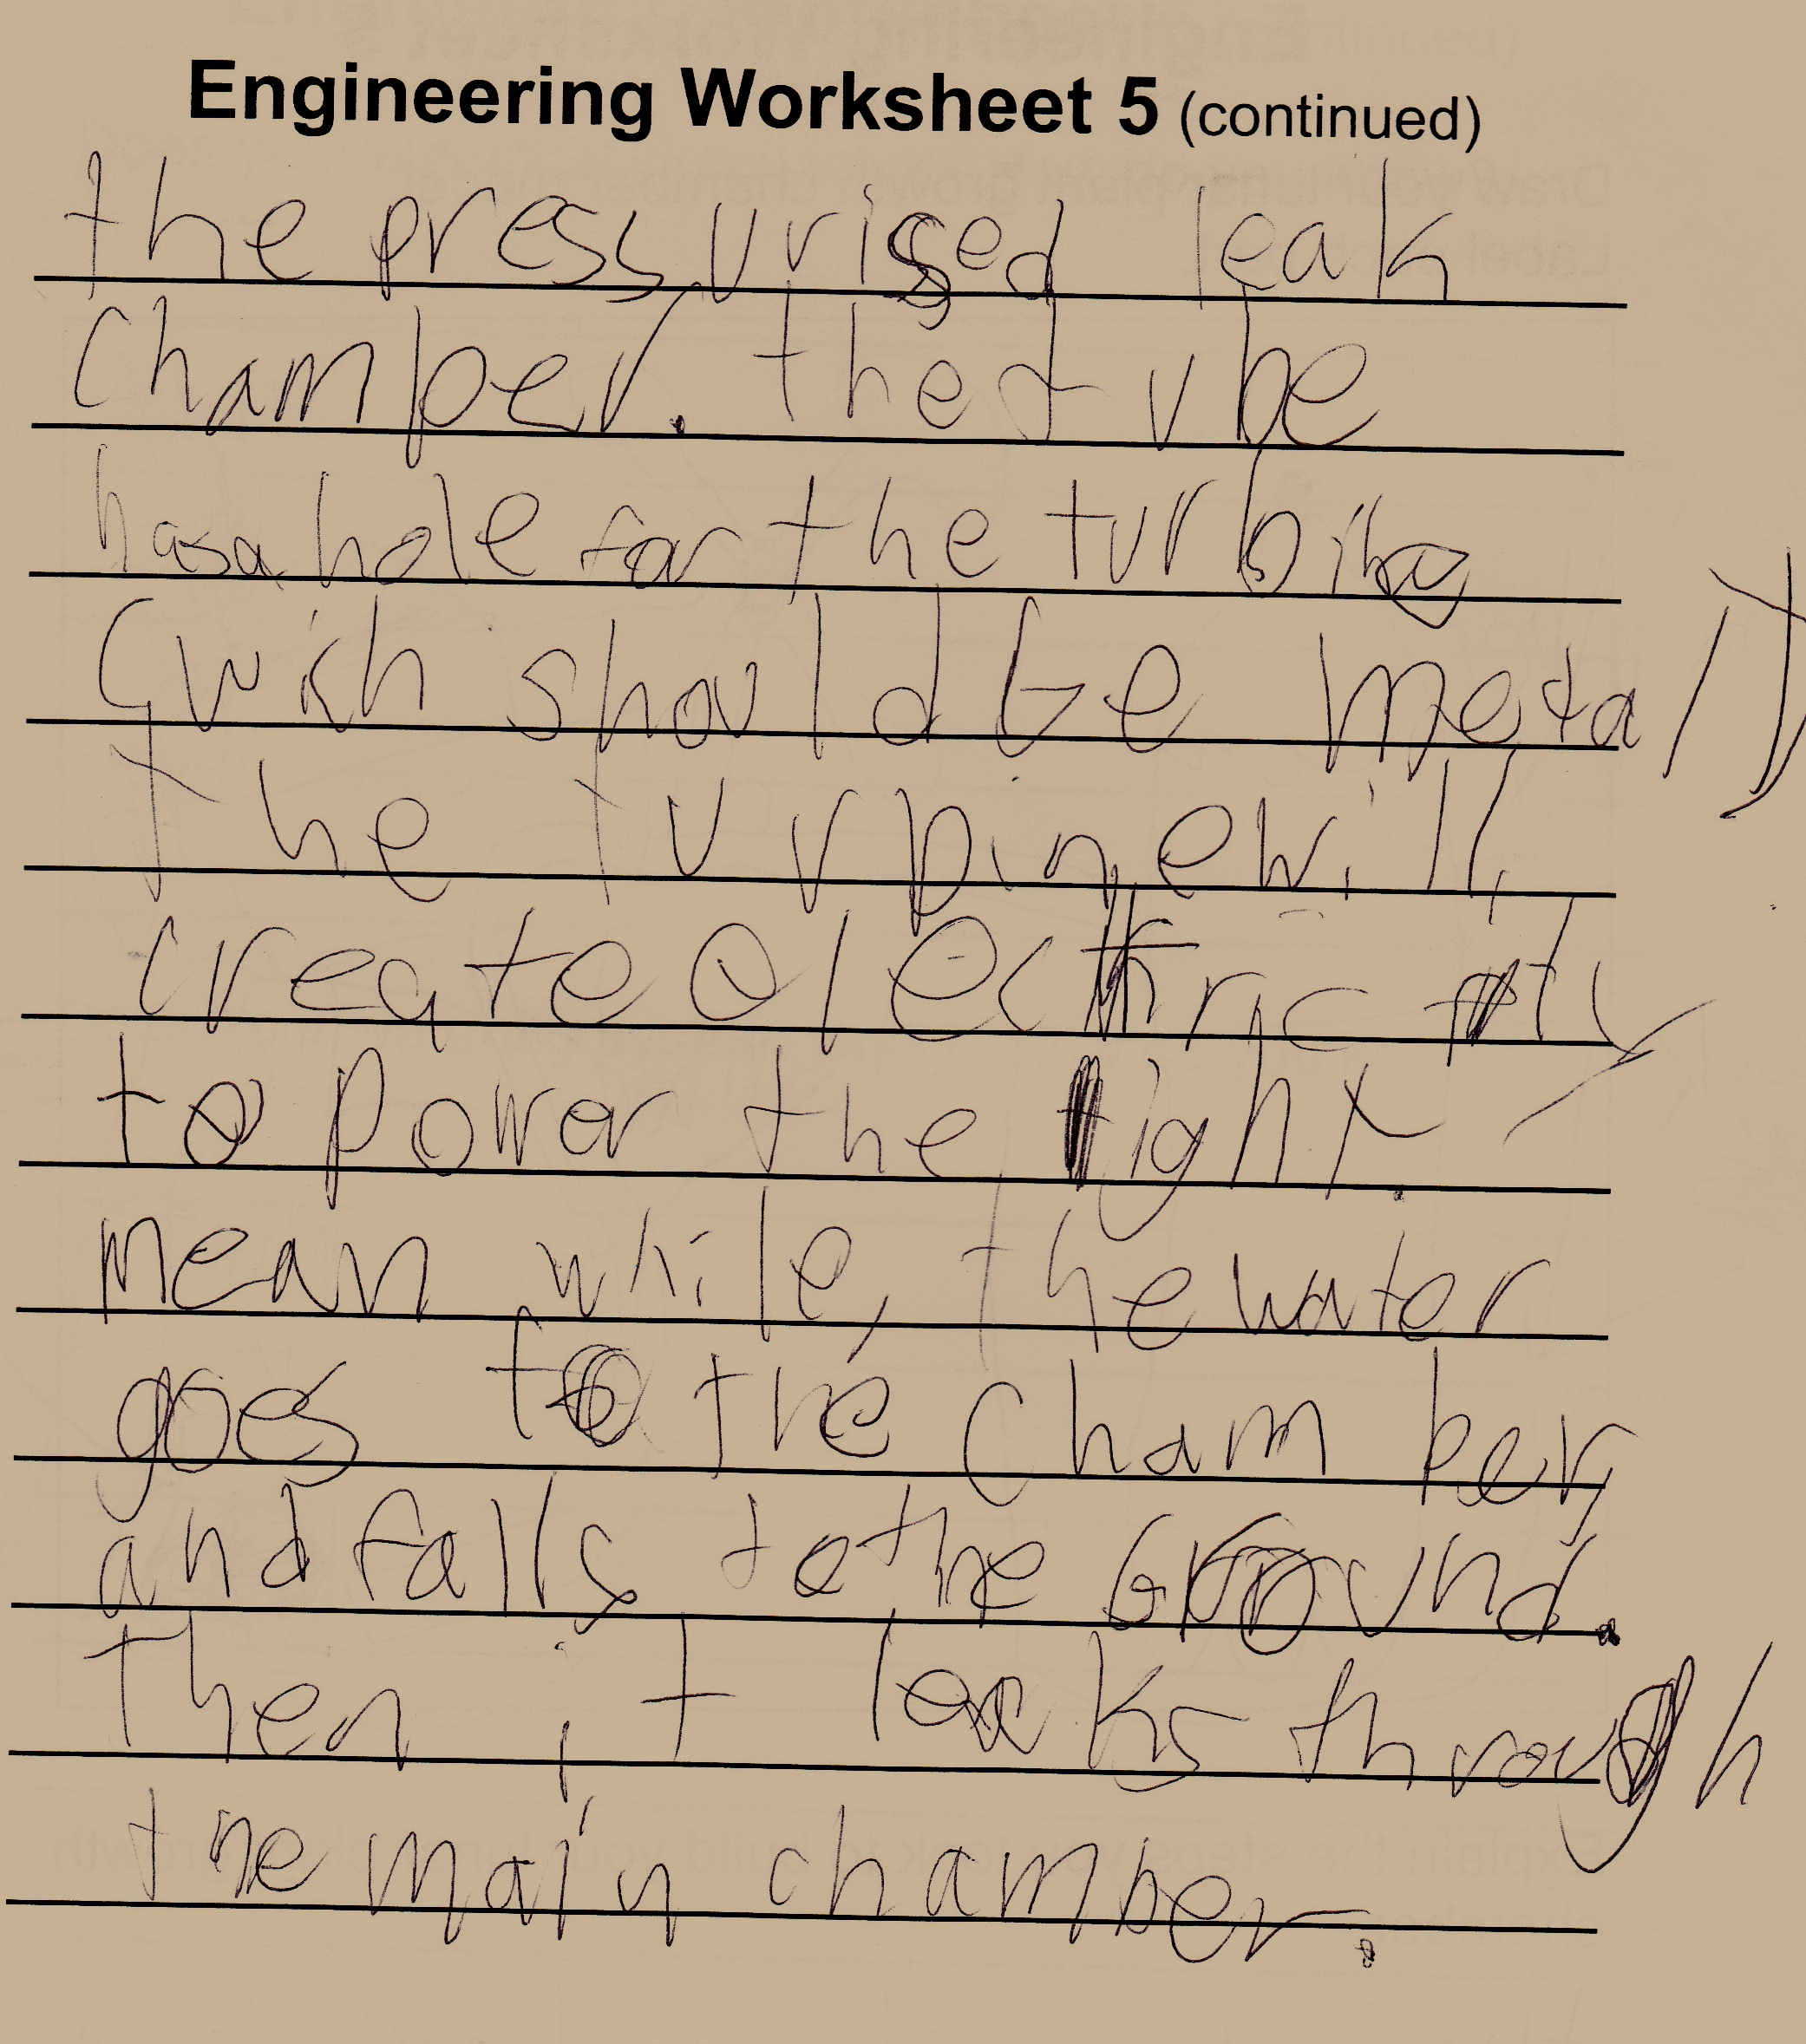 Engineering Worksheet 5 (continued)
the pressurised leak
chamber. the tube
has a hole for the turbine
(wich should be metal)
the turbine will
create electricity
to power the light.
mean while, the water
goes to the chamber,
and falls to the Ground.
Then it leaks through
the main chamber.